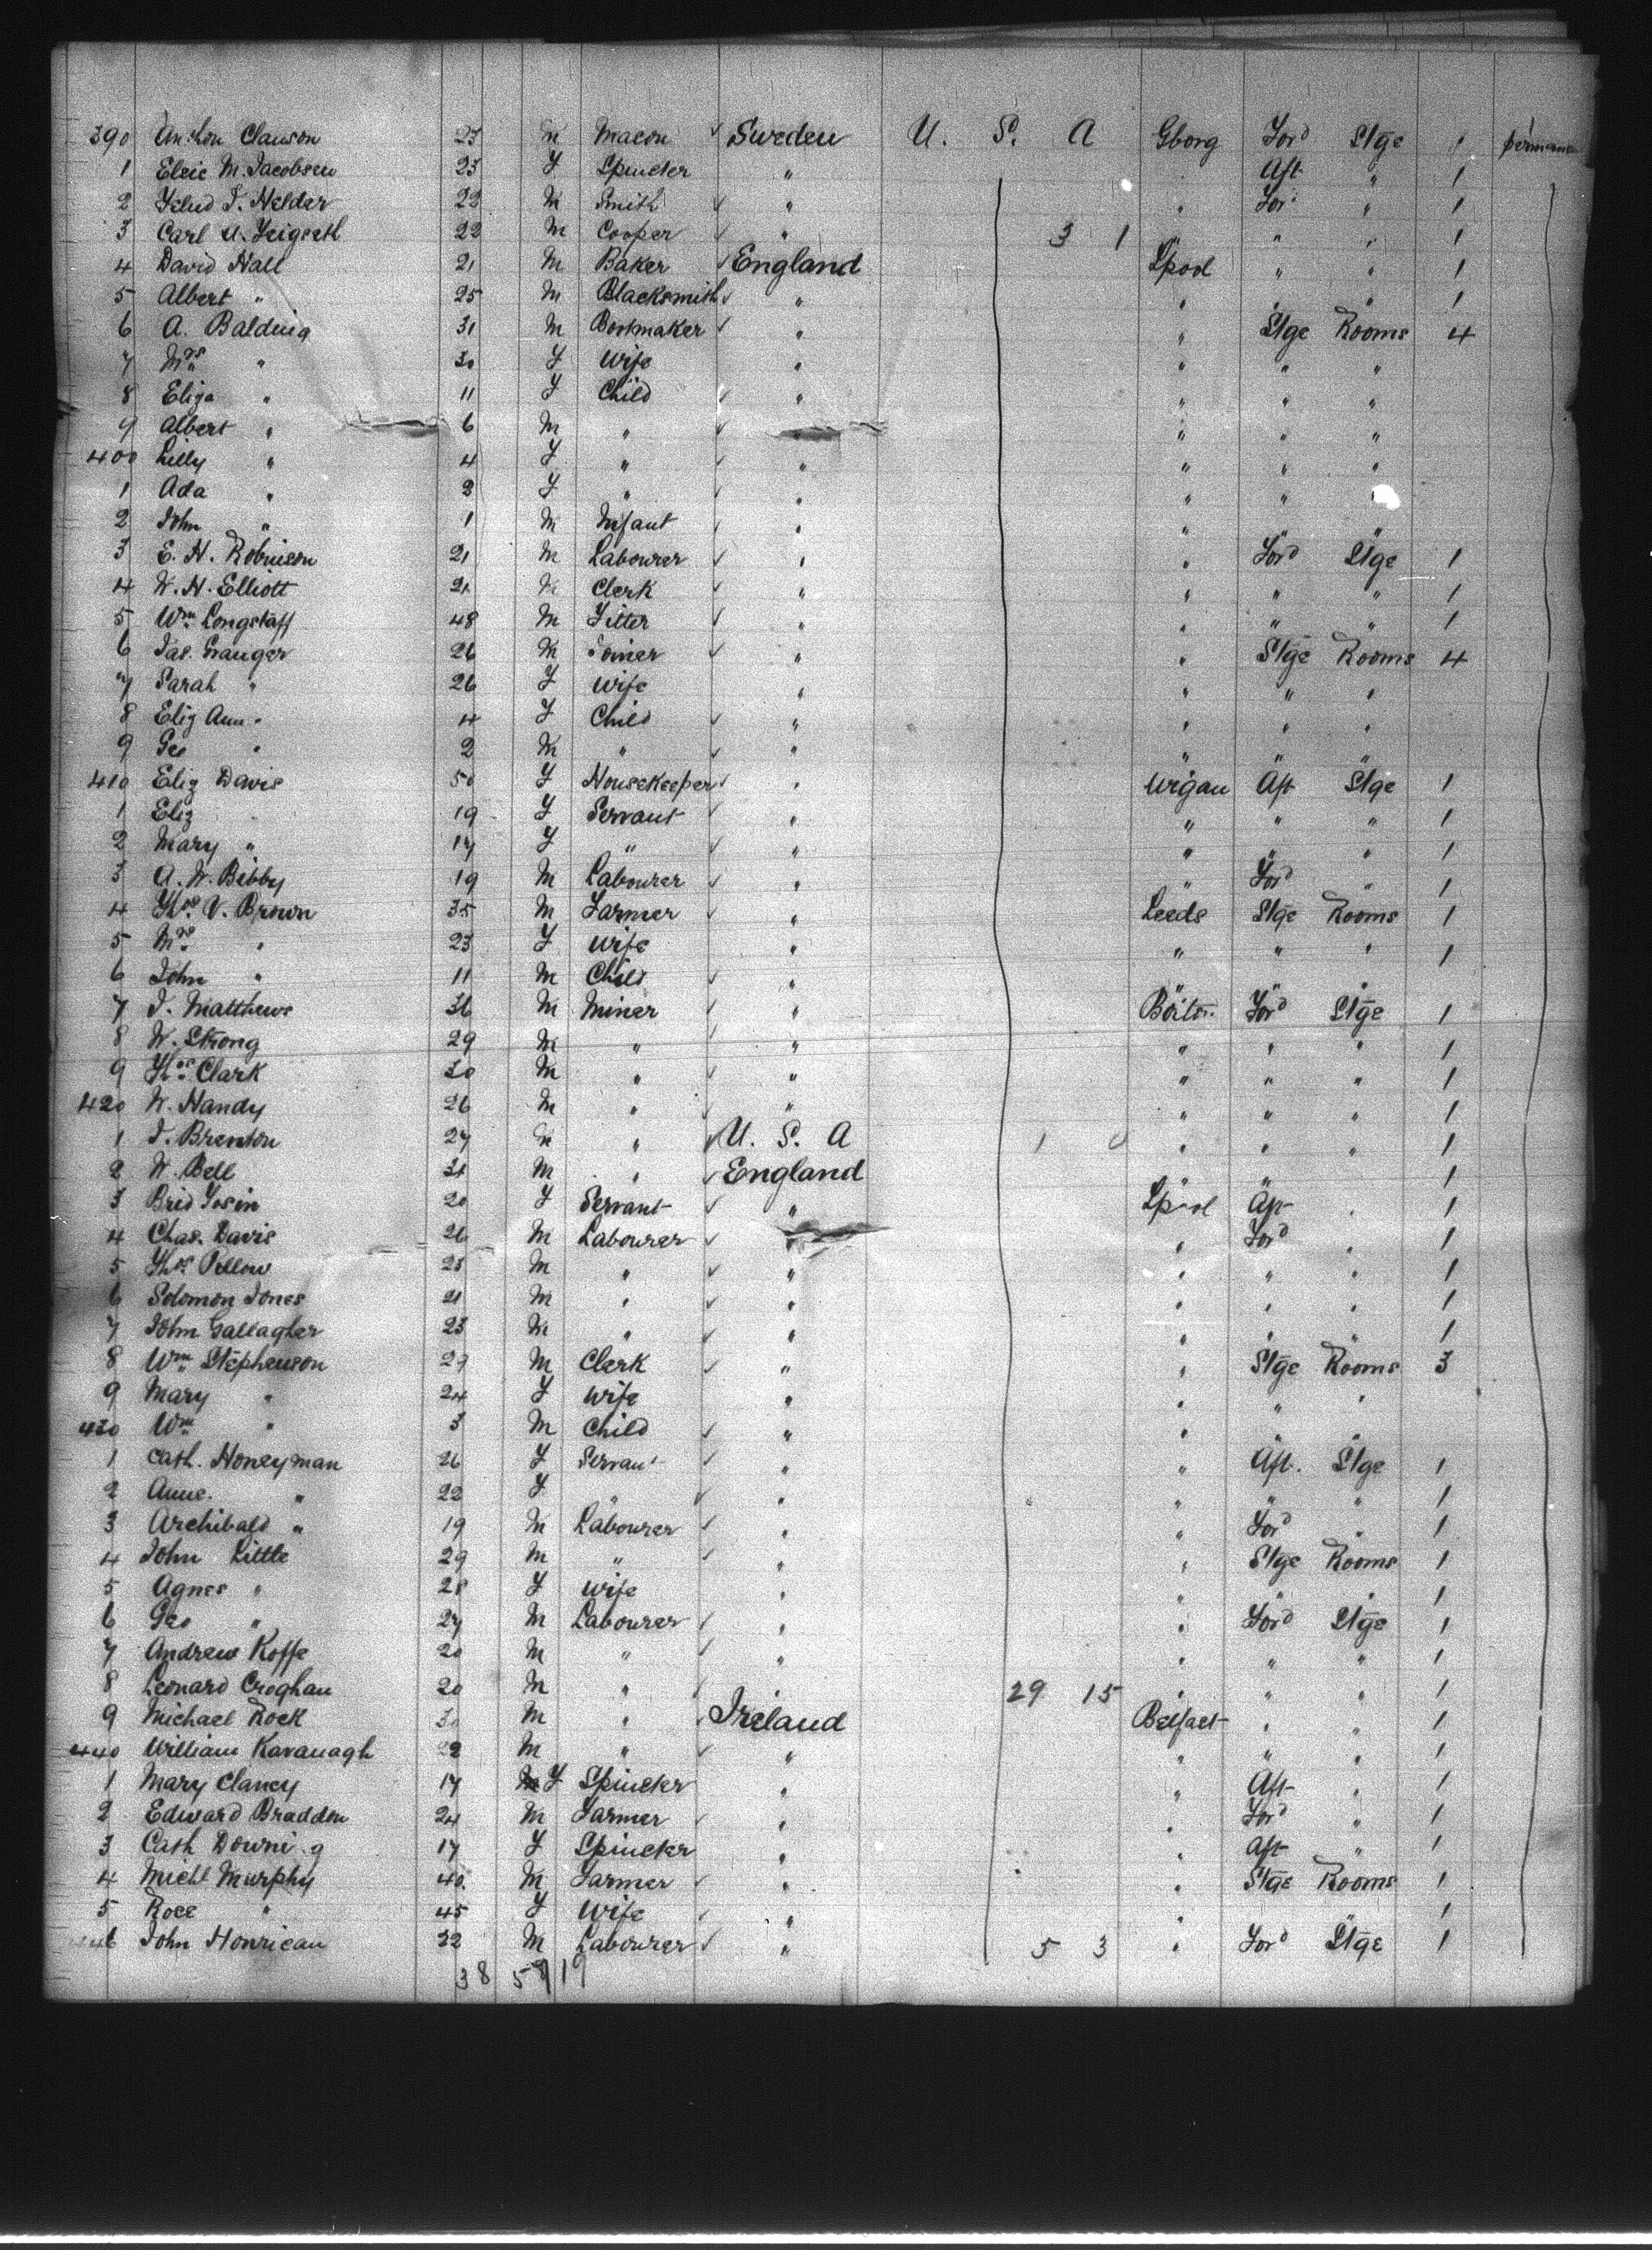 390 Clauson 23 M Mason ✓ Sweden U. S. A Gborg Ford Stge 1
1 Elsie M. Jacobsen 23 F Spinster " Aft " 1
2 Helder 22 M Smith ✓ " " For " 1
3 Carl 22 M Cooper ✓ " 3 1 " " " 1
4 David Hall 21 M Baker ✓ England Lpool " " 1
5 Albert " 25 M Blacksmith ✓ " " " " 1
6 A. Balding 31 M Bootmaker ✓ " " Stge Rooms 4
7 Mrs " 30 F Wife " " " "
8 Eliza " 11 F Child ✓ " " " "
9 Albert " 6 M " ✓ " " " "
400 Lilly " 4 F " ✓ " " " "
1 Ada " 2 F " ✓ " " " "
2 John " 1 M Infant ✓ " " " "
3 E. H. Robinson 21 M Labourer ✓ " " Ford Stge 1
4 W. H. Elliott 21 M Clerk ✓ " " " " 1
5 Wm Longstaff 48 M Fitter ✓ " " " " 1
6 Jas. Granger 26 M Joiner ✓ " " Stge Rooms 4
7 Sarah " 26 F Wife " " " "
8 Eliz Ann " 4 F Child ✓ " " " "
9 Geo " 2 M " ✓ " " " "
410 Eliz Davis 50 F Housekeeper ✓ " Wigan Aft Stge 1
1 Eliz 19 F Servant ✓ " " " " 1
2 Mary " 17 F " ✓ " " " " 1
3 A. W. Bibby 19 M Labourer ✓ " " Ford " 1
4 Thos V. Brown 35 M Farmer ✓ " Leeds Stge Rooms 1
5 Mrs " 23 F Wife " " " " 1
6 John " 11 M Child ✓ " " "
7 J. Matthews 36 M Miner ✓ " Ford Stge 1
8 W. Strong 29 M " ✓ " " " " 1
9 Thos Clark 30 M " ✓ " " " " 1
420 W. Handy 26 M " ✓ " " " " 1
1 J. Brenton 27 M " ✓ U. S. A 1 0 " " " 1
2 W. Bell 31 M " ✓ England " " 1
3 Brid 20 F Servant ✓ " Lpool Aft " 1
4 Chas. Davis 26 M Labourer ✓ " " Ford " 1
5 Thos Pellow 23 M " ✓ " " " " 1
6 Solomon Jones 21 M " ✓ " " " " 1
7 John Gallagher 23 M " ✓ " " " " 1
8 Wm Stephenson 29 M Clerk ✓ " " Stge Rooms 3
9 Mary " 24 F Wife " " " "
430 Wm " 3 M Child ✓ " " "
1 Cath. Honeyman 26 F Servant ✓ " " Aft. Stge 1
2 Anne. " 22 F " ✓ " " " " 1
3 Archibald " 19 M Labourer ✓ " " Ford " 1
4 John Little 29 M " ✓ " " Stge Rooms 1
5 Agnes " 28 F Wife " " " " 1
6 Geo " 27 M Labourer ✓ " " Ford Stge 1
7 Andrew Koffe 20 M " ✓ " " " " 1
8 Leonard Croghan 20 M " ✓ " 29 15 " " " 1
9 Michael Rock 30 M " ✓ Ireland Belfast " " 1
440 William Kavanagh 22 M " ✓ " " " " 1
1 Mary Clancy 17 F Spinster " " Aft " 1
2 Edward Braddon 24 M Farmer ✓ " " Ford " 1
3 Cath 17 F Spinster " " Aft " 1
4 Michl Murphy 40. M Farmer ✓ " " Stge Rooms 1
5 Rose " 45 F Wife ✓ " " 1
446 John 32 M Labourer ✓ " 5 3 " Ford Stge 1
38 5 19